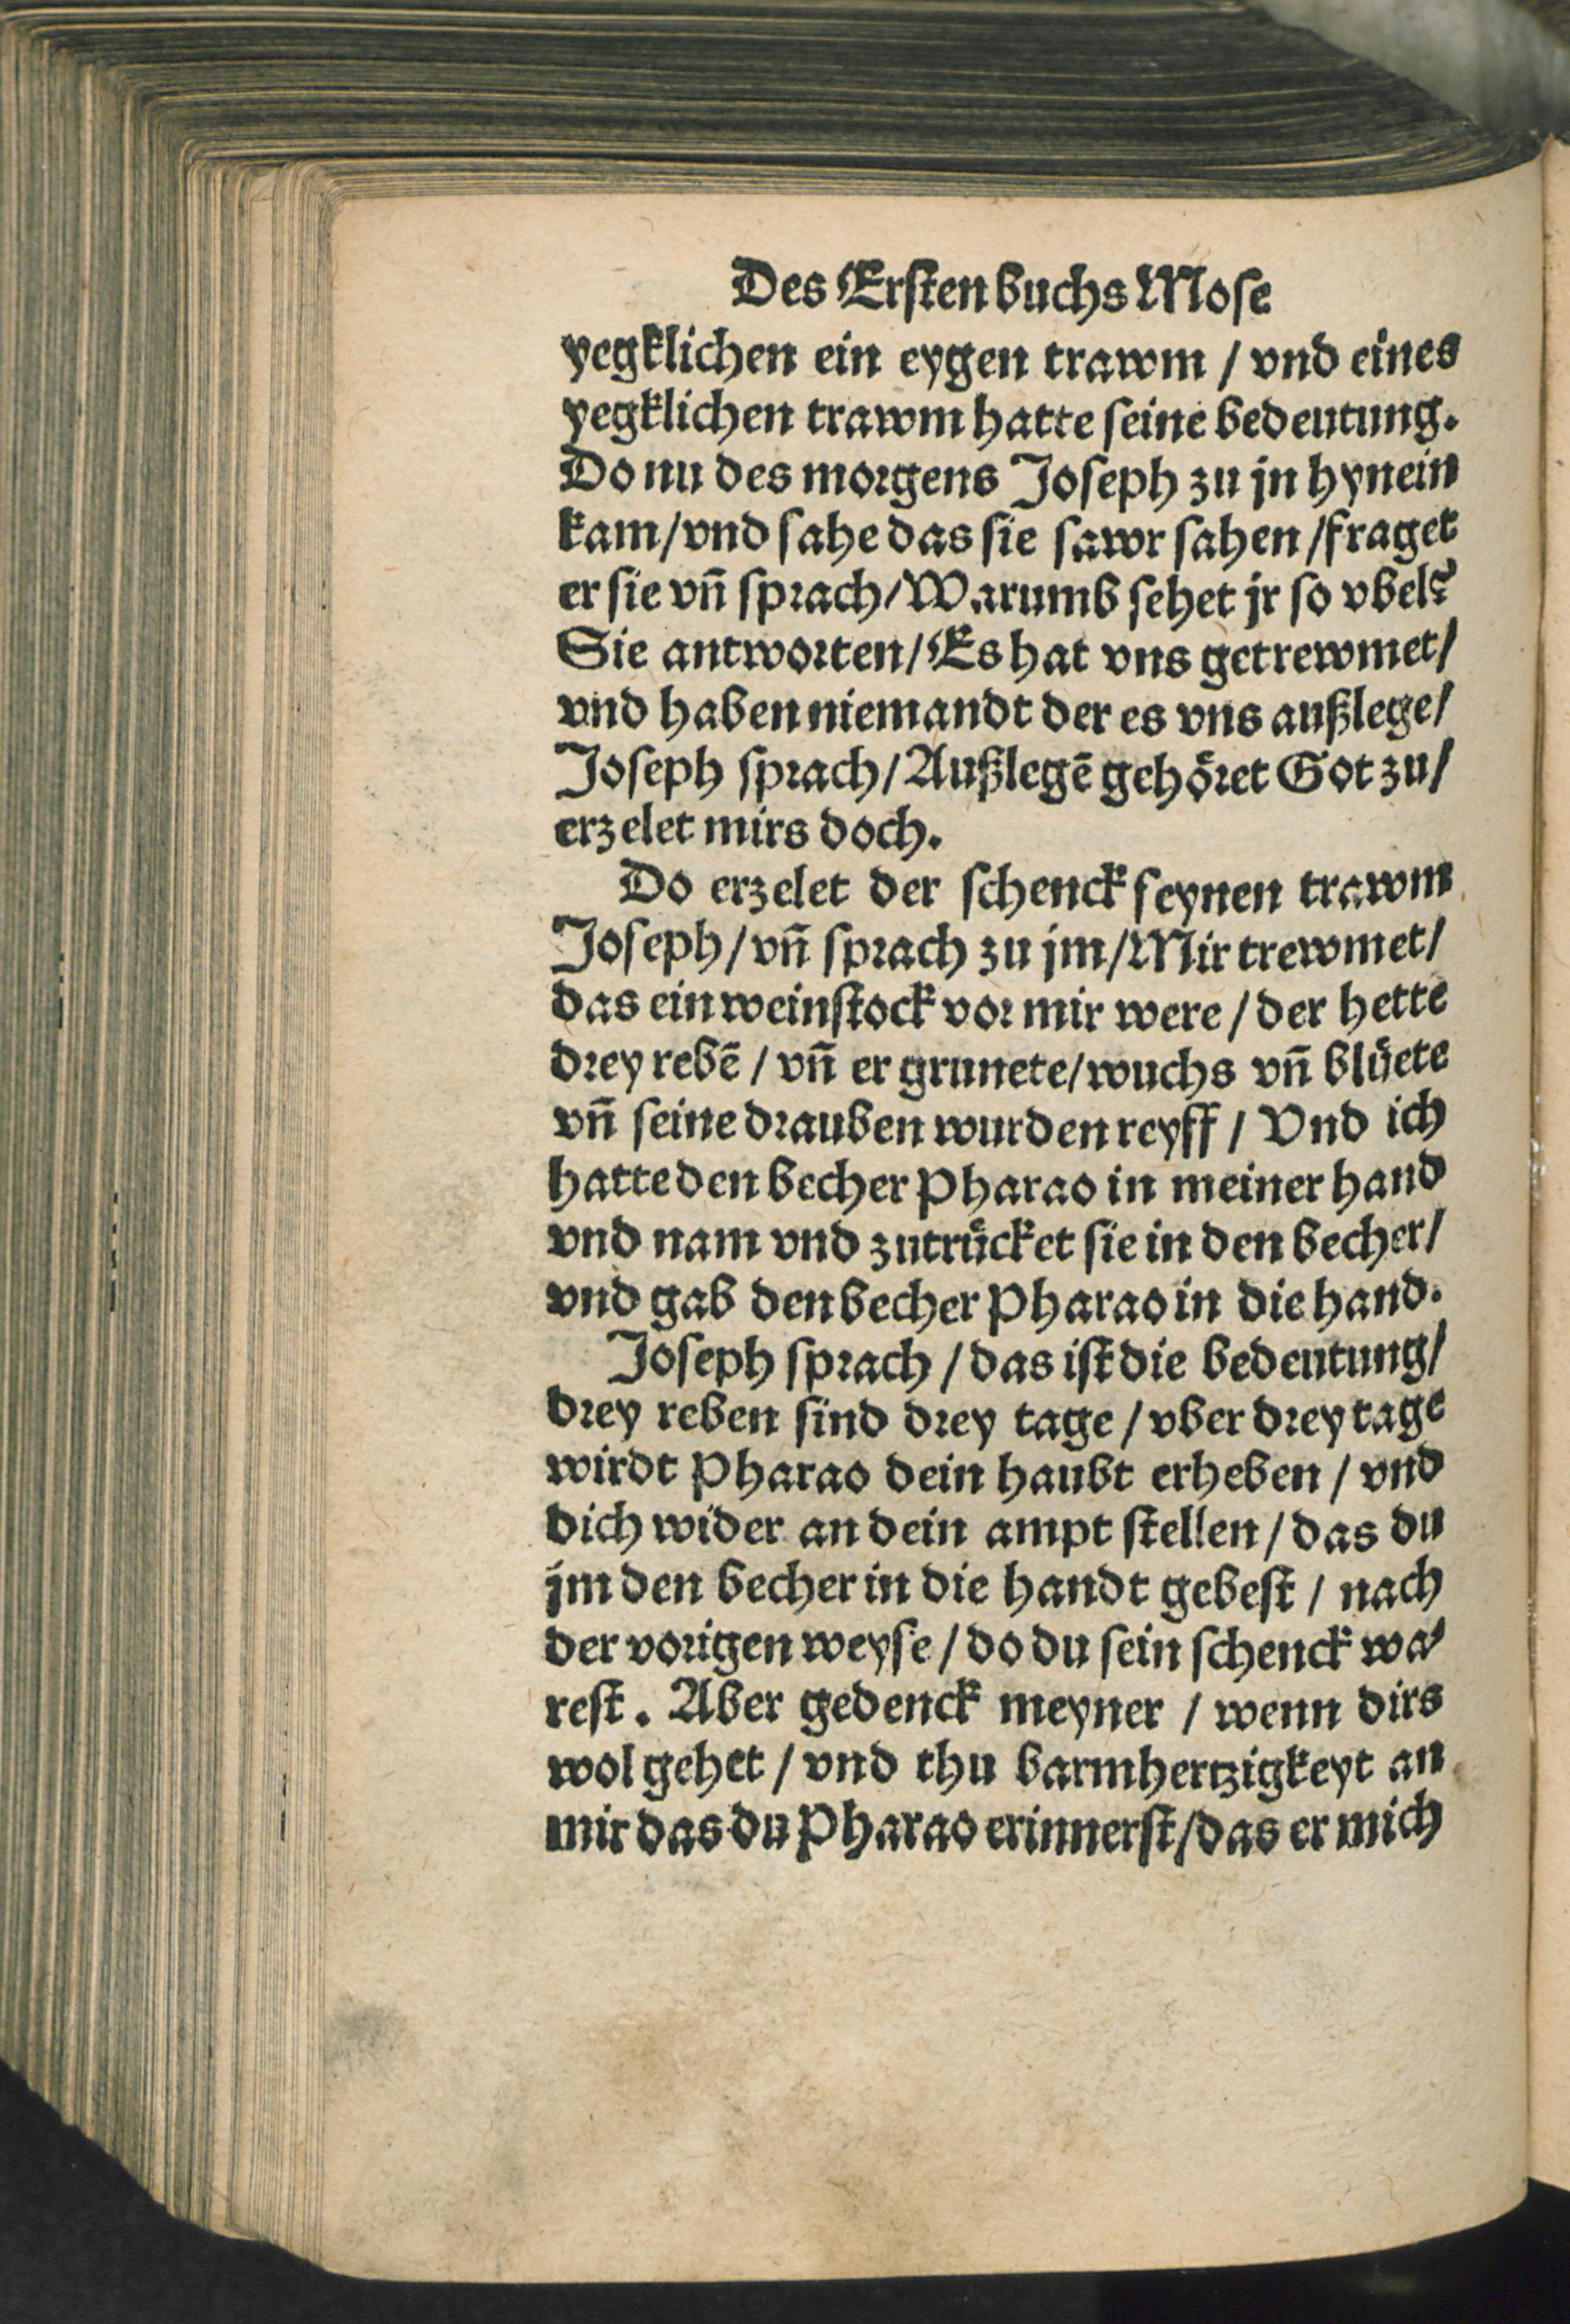 Des Ersten buchs Mose
yegklichen ein eygen trawm / vnd eines
yegklichen trawm hatte seine bedeutung.
Do nu des morgens Joseph zu jn hynein
kam / vnd sahe das sie sawr sahen / fraget
er sie vñ sprach / Warumb sehet jr so vbel?
Sie antworten / Es hat vns getrewmet /
vnd haben niemandt der es vns außlege /
Joseph sprach / Außlegē gehoͤret Got zu /
erzelet mirs doch.
Do erzelet der schenck seynen trawm
Joseph / vñ sprach zu jm / Mir trewmet /
das ein weinstock vor mir were / der hette
drey rebē / vñ er grunete / wuchs vñ bluͤete
vñ seine drauben wurden reyff / Vnd ich
hatte den becher Pharao in meiner hand
vnd nam vnd zutruͤcket sie in den becher /
vnd gab den becher Pharao in die hand.
Joseph sprach / das ist die bedeutung /
drey reben sind drey tage / vber drey tage
wirdt Pharao dein haubt erheben / vnd
dich wider an dein ampt stellen / das du
jm den becher in die handt gebest / nach
der vorigen weyse / do du sein schenck wa⸗
rest. Aber gedenck meyner / wenn dirs
wol gehet / vnd thu barmhertzigkeyt an
mir das du Pharao erinnerst / das er mich